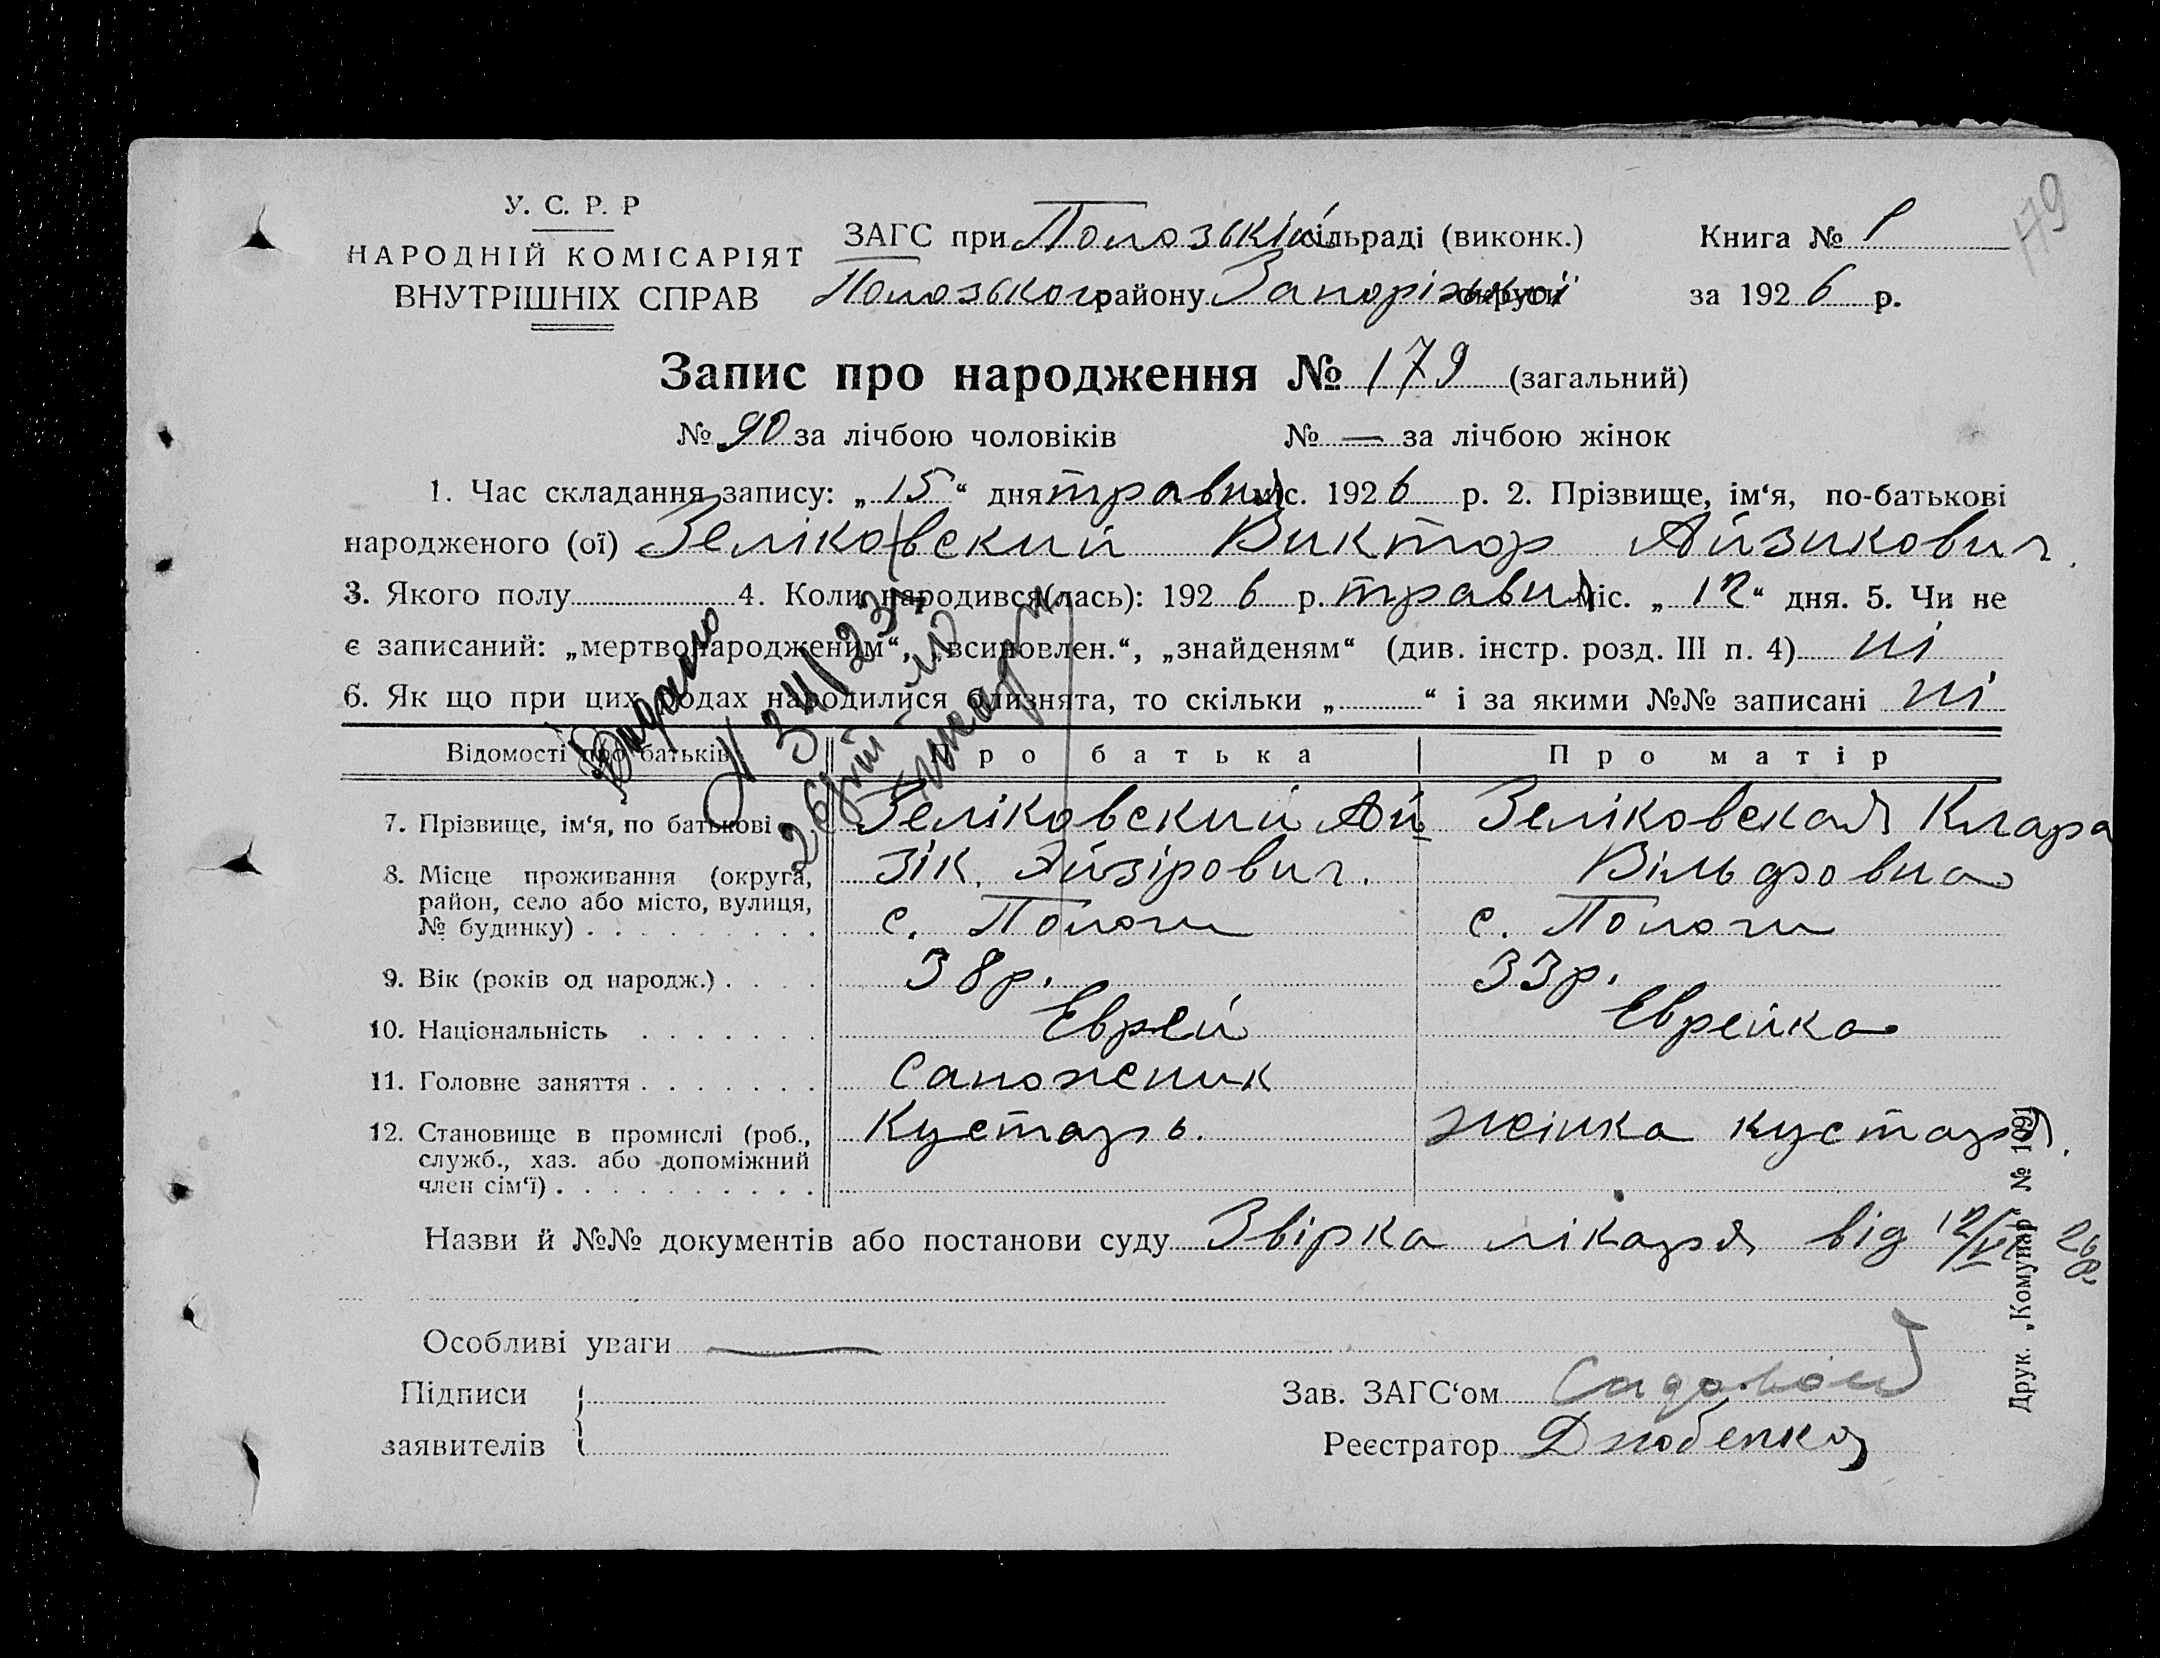 179
У. С. Р. Р
НАРОДНІЙ КОМІСАРІЯТ
ВНУТРІШНІХ СПРАВ
ЗАГС при Полозькій сільраді (виконк.)
Полозького району Запорізької округи
Книга № 1
за 1926 р.
Запис про народження № 179 (загальний)
№ 90 за лічбою чоловіків № — за лічбою жінок
1. Час складання запису: „15“ дня травня міс. 1926 р. 2. Прізвище, ім‘я, по-батькові
народженого (ої) Зеліковский Виктор Айзикович.
3. Якого полу 4. Коли народився(лась): 1926 р. травня міс. „12“ дня. 5. Чи не
є записаний: „мертвонародженим“, „всиновлен.“, „знайденям“ (див. інстр. розд. III п. 4) ні
6. Як що при цих родах народилися близнята, то скільки „ “ і за якими №№ записані ні
Видано
Відомості про батьків Про батька Про матір
7. Прізвище, ім‘я, по батькові Зеліковский Ай Зеліковская Клара
зік. Эйзірович. Вільфовна
8. Місце проживання (округа,
район, село або місто, вулиця,
№ будинку) с. Пологи с. Пологи
9. Вік (років од народж.) 38р. 33р.
10. Національність Еврей Еврейка
11. Головне заняття Сапожник
12. Становище в промислі (роб., Кустарь. жінка кустаря.
служб., хаз. або допоміжний
член сім‘ї)
Назви й №№ документів або постанови суду Звірка лікаря від 12/V 26р.
Особливі уваги —
Підписи
заявителів
Зав. ЗАГС‘ом
Реєстратор
Друк. „Комунар“ № 1091